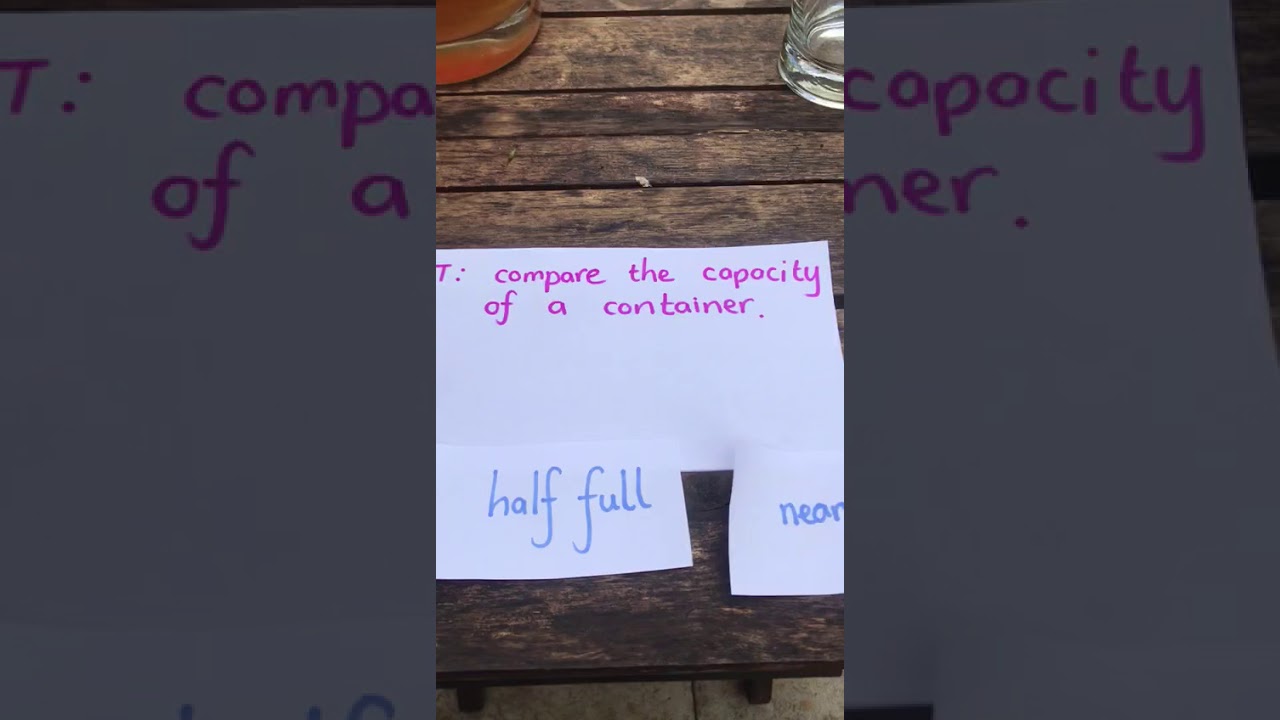 T: compare the capacity
of a container.
half full
near